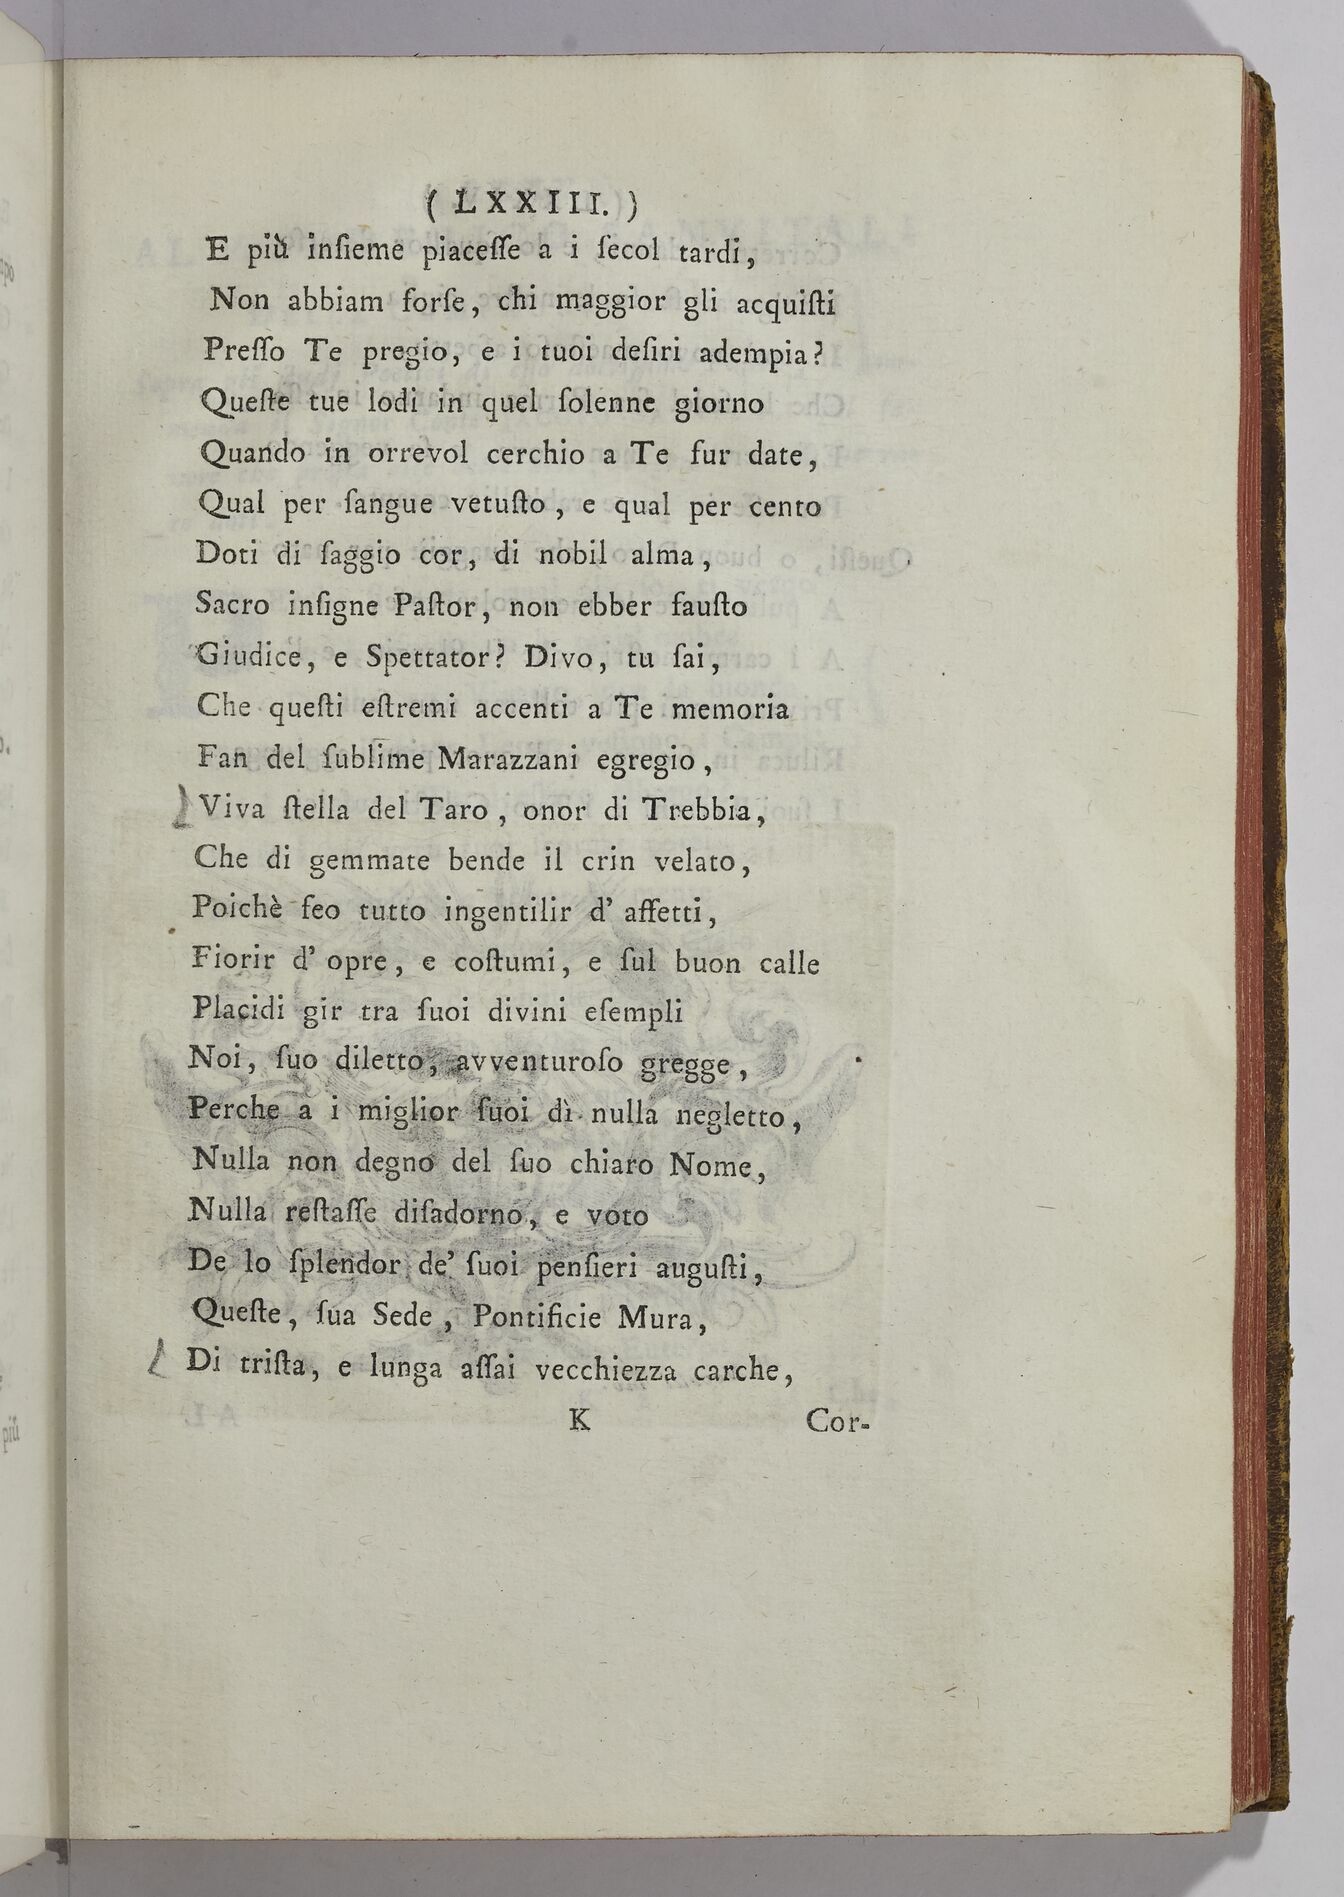 ( LXXIII. )
E più inſieme piaceſſe a i ſecol tardi,
Non abbiam forſe, chi maggior gli acquiſti
Preſſo Te pregio, e i tuoi deſiri adempia?
Queſte tue lodi in quel ſolenne giorno
Quando in orrevol cerchio a Te fur date,
Qual per ſangue vetuſto, e qual per cento
Doti di ſaggio cor, di nobil alma,
Sacro inſigne Paſtor, non ebber fauſto
Giudice, e Spettator? Divo, tu ſai,
Che queſti eſtremi accenti a Te memoria
Fan del ſublime Marazzani egregio,
Viva ſtella del Taro, onor di Trebbia,
Che di gemmate bende il crin velato,
Poichè feo tutto ingentilir d' affetti,
Fiorir d' opre, e coſtumi, e ſul buon calle
Placidi gir tra ſuoi divini eſempli
Noi, ſuo diletto, avventuroſo gregge,
Perche a i miglior ſuoi dì nulla negletto,
Nulla non degno del ſuo chiaro Nome,
Nulla reſtaſſe diſadorno, e voto
De lo ſplendor de' ſuoi penſieri auguſti,
Queſte, ſua Sede, Pontificie Mura,
Di triſta, e lunga aſſai vecchiezza carche,
K Cor-
più